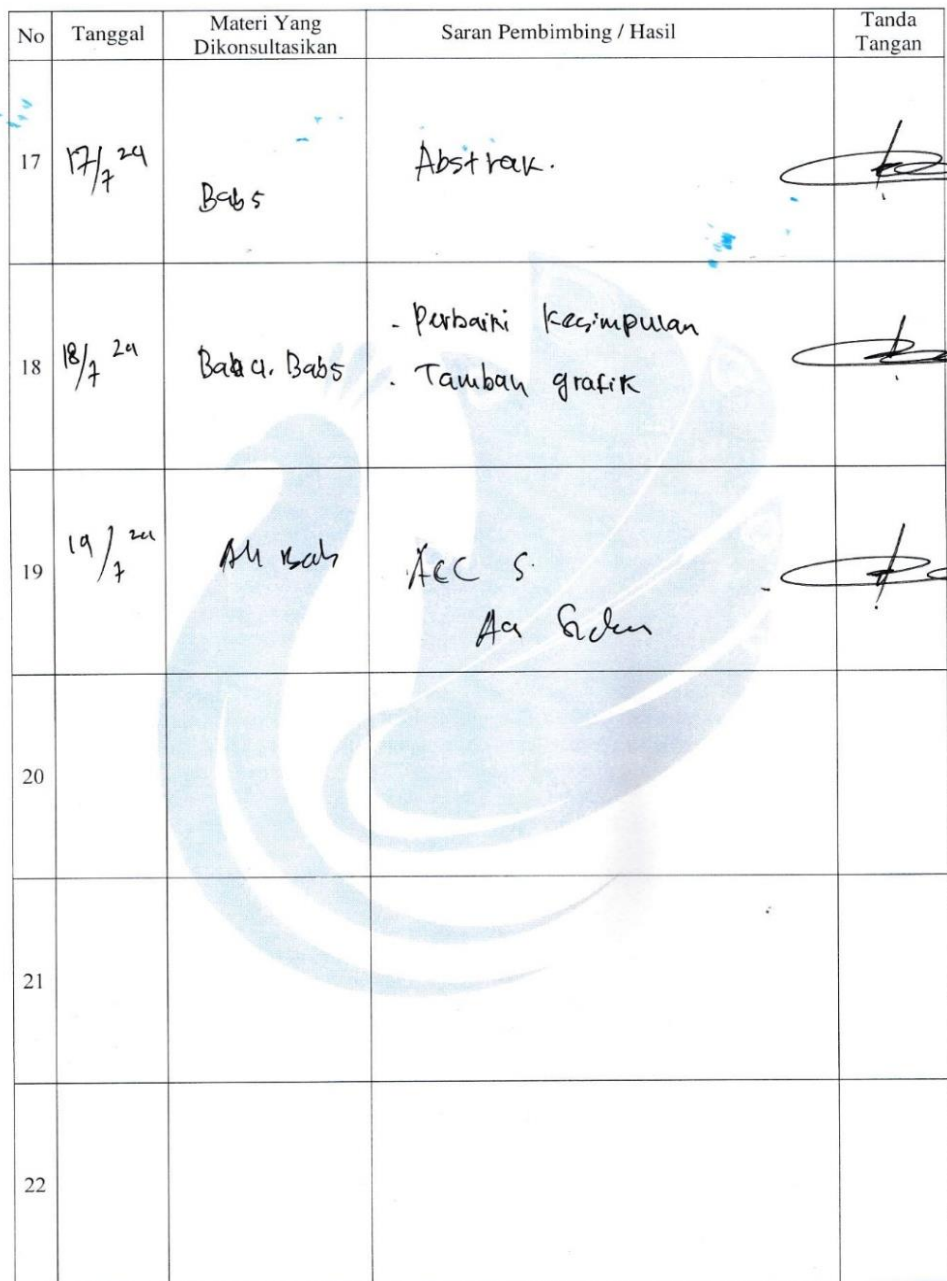 No Tanggal Materi Yang Dikonsultasikan Saran Pembimbing / Hasil Tanda Tangan
17 17/7 24 Bab 5 Abstrak.
18 18/7 24 Bab 4. Bab 5 - Perbaiki Kesimpulan
- Tambah grafik
19 19/7 24 All Bab ACC
20
21
22